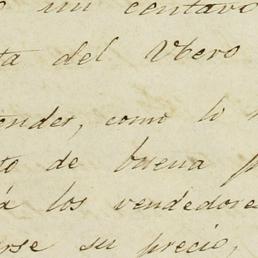 un centavo
ta del Vbero
ender, como li
to de buena p
á los vendedore
rse su precio,